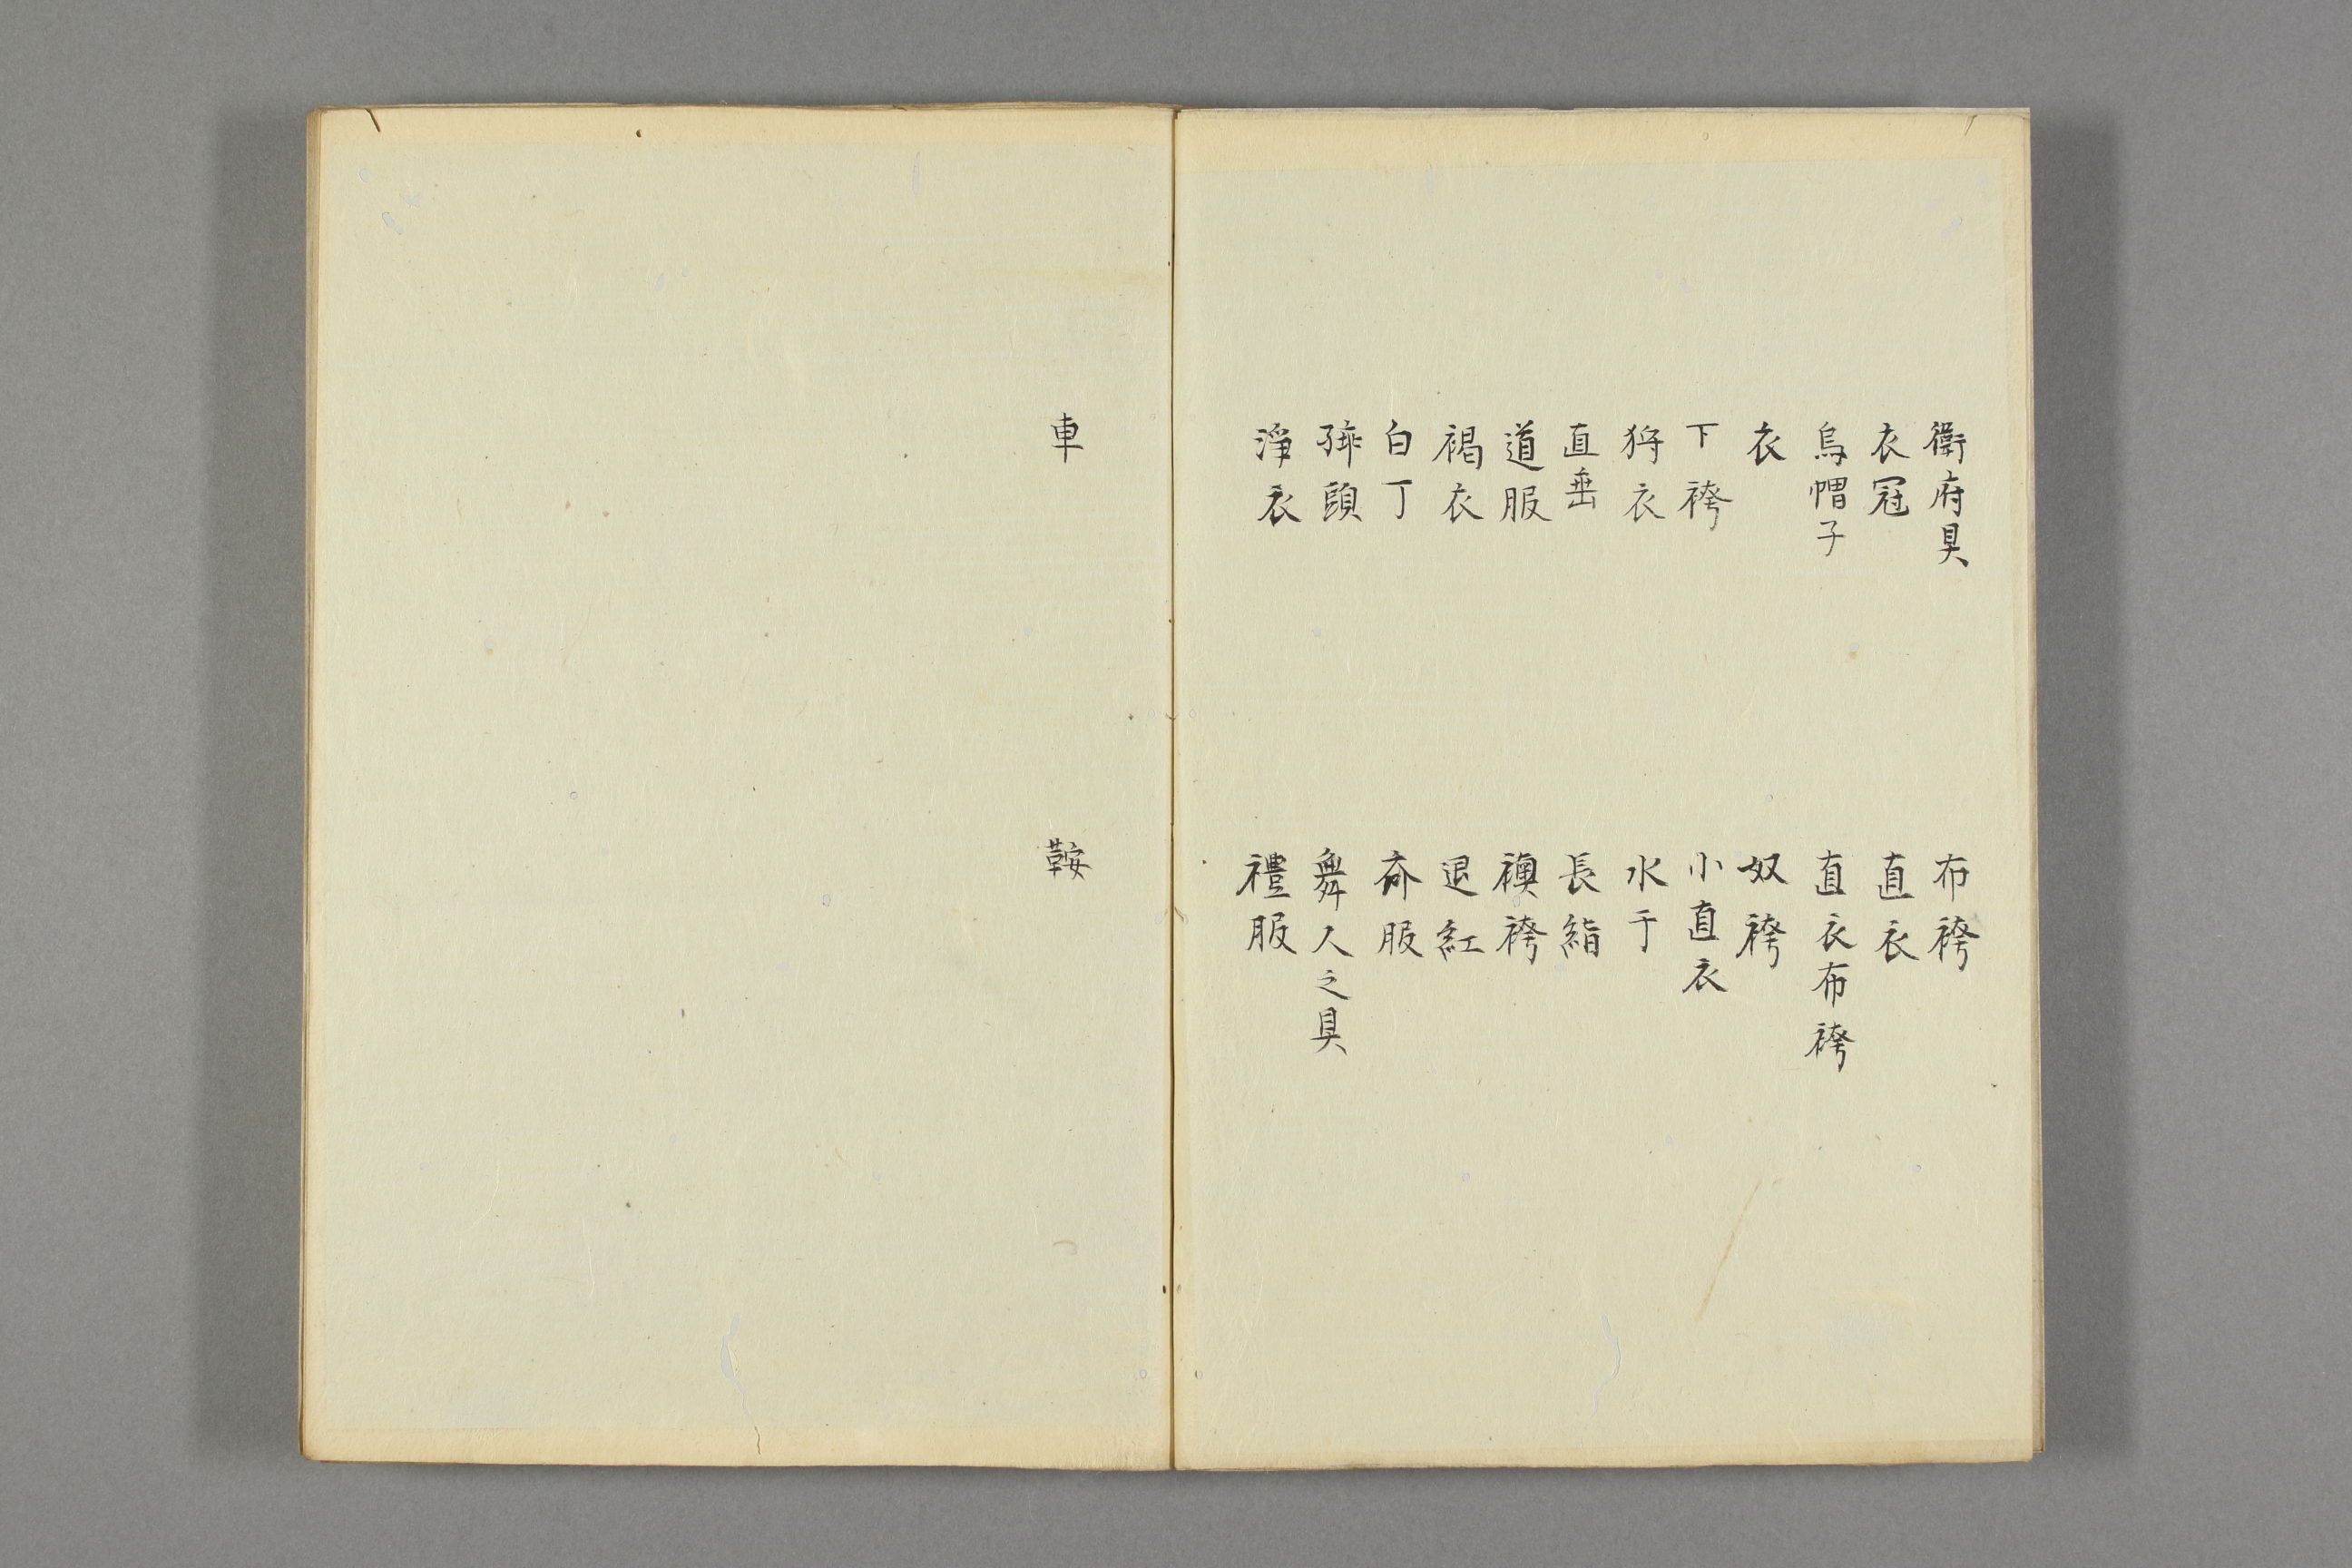 衛府具 布袴
衣冠 直衣
烏帽子 直衣布袴
衣 奴袴
下袴 小直衣
狩衣 水于
直垂 長絹
道服 襖袴
褐衣 退紅
白丁 斎服
頭 舞人之具
淨衣 禮服
車 鞍